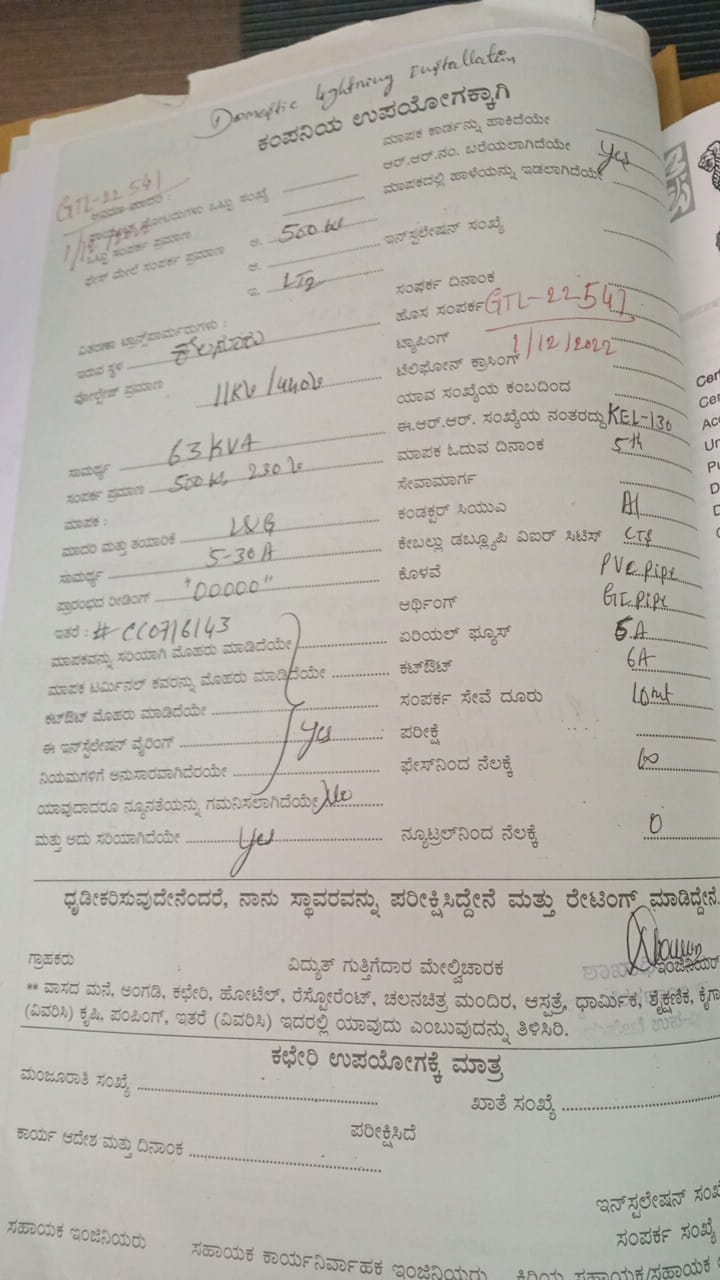 Domestic lightning Installation
ಕಂಪನಿಯ ಉಪಯೋಗಕ್ಕಾಗಿ
ಮಾಪಕ ಕಾರ್ಡನ್ನು ಹಾಕಿದೆಯೇ
ಆರ್.ಆರ್.ನಂ. ಬರೆಯಲಾಗಿದೆಯೇ Yes
ಮಾಪಕದಲ್ಲಿ ಹಾಳೆಯನ್ನು ಇಡಲಾಗಿದೆಯೇ
GTL-22541
ಒಟ್ಟು ಸಂಖ್ಯೆ
ಒಟ್ಟು ಸಂಪರ್ಕ ಪ್ರಮಾಣ
ಫೇಸ್ ಮೇಲೆ ಸಂಪರ್ಕ ಪ್ರಮಾಣ ಅ. 500 W
ಆ. ಇನ್‌ಸ್ಟಲೇಷನ್ ಸಂಖ್ಯೆ
ಇ. LT2
ಸಂಪರ್ಕ ದಿನಾಂಕ
ವಿತರಣಾ ಟ್ರಾನ್ಸ್‌ಫಾರ್ಮರುಗಳು : ಹೊಸ ಸಂಪರ್ಕ GTL-22541
ಇರುವ ಸ್ಥಳ ಟ್ಯಾಪಿಂಗ್ 1/12/2022
ವೋಲ್ಟೇಜ್ ಪ್ರಮಾಣ 11KV/440V ಟೆಲಿಫೋನ್ ಕ್ರಾಸಿಂಗ್
ಯಾವ ಸಂಖ್ಯೆಯ ಕಂಬದಿಂದ
ಸಾಮರ್ಥ್ಯ 63 KVA ಈ.ಆರ್.ಆರ್. ಸಂಖ್ಯೆಯ ನಂತರದ್ದು KEL-130
ಸಂಪರ್ಕ ಪ್ರಮಾಣ 500 W, 230 V ಮಾಪಕ ಓದುವ ದಿನಾಂಕ 5th
ಮಾಪಕ : ಸೇವಾಮಾರ್ಗ
ಮಾದರಿ ಮತ್ತು ತಯಾರಿಕೆ L&G ಕಂಡಕ್ಟರ್ ಸಿಯುಎ Al
ಸಾಮರ್ಥ್ಯ 5-30A ಕೇಬಲ್ಲು ಡಬ್ಲ್ಯೂಪಿ ವಿಐಆರ್ ಸಿಟಿಸ್ CTS
ಪ್ರಾರಂಭದ ರೀಡಿಂಗ್ "00000" ಕೊಳವೆ PVC pipe
ಇತರೆ : # CC0716143 ಆರ್ಥಿಂಗ್ GI pipe
ಮಾಪಕವನ್ನು ಸರಿಯಾಗಿ ಮೊಹರು ಮಾಡಿದೆಯೇ ಏರಿಯಲ್ ಫ್ಯೂಸ್ 6A
ಮಾಪಕ ಟರ್ಮಿನಲ್ ಕವರನ್ನು ಮೊಹರು ಮಾಡಿದೆಯೇ ಕಟ್‌ಔಟ್ 6A
ಕಟ್‌ಔಟ್ ಮೊಹರು ಮಾಡಿದೆಯೇ ಸಂಪರ್ಕ ಸೇವೆ ದೂರು 10 mt
ಈ ಇನ್‌ಸ್ಟಲೇಷನ್ ವೈರಿಂಗ್ Yes ಪರೀಕ್ಷೆ
ನಿಯಮಗಳಿಗೆ ಅನುಸಾರವಾಗಿದೆರಯೇ ಫೇಸ್‌ನಿಂದ ನೆಲಕ್ಕೆ ∞
ಯಾವುದಾದರೂ ನ್ಯೂನತೆಯನ್ನು ಗಮನಿಸಲಾಗಿದೆಯೇ No
ಮತ್ತು ಅದು ಸರಿಯಾಗಿದೆಯೇ Yes ನ್ಯೂಟ್ರಲ್‌ನಿಂದ ನೆಲಕ್ಕೆ 0
ಧೃಡೀಕರಿಸುವುದೇನೆಂದರೆ, ನಾನು ಸ್ಥಾವರವನ್ನು ಪರೀಕ್ಷಿಸಿದ್ದೇನೆ ಮತ್ತು ರೇಟಿಂಗ್ ಮಾಡಿದ್ದೇನೆ.
ಗ್ರಾಹಕರು ವಿದ್ಯುತ್ ಗುತ್ತಿಗೆದಾರ ಮೇಲ್ವಿಚಾರಕ ಇಂಜಿನಿಯರ್
** ವಾಸದ ಮನೆ, ಅಂಗಡಿ, ಕಛೇರಿ, ಹೋಟೆಲ್, ರೆಸ್ಟೋರೆಂಟ್, ಚಲನಚಿತ್ರ ಮಂದಿರ, ಆಸ್ಪತ್ರೆ, ಧಾರ್ಮಿಕ, ಶೈಕ್ಷಣಿಕ, ಕೈಗಾ
(ವಿವರಿಸಿ) ಕೃಷಿ, ಪಂಪಿಂಗ್, ಇತರೆ (ವಿವರಿಸಿ) ಇದರಲ್ಲಿ ಯಾವುದು ಎಂಬುವುದನ್ನು ತಿಳಿಸಿರಿ.
ಕಛೇರಿ ಉಪಯೋಗಕ್ಕೆ ಮಾತ್ರ
ಮಂಜೂರಾತಿ ಸಂಖ್ಯೆ ಖಾತೆ ಸಂಖ್ಯೆ
ಕಾರ್ಯ ಆದೇಶ ಮತ್ತು ದಿನಾಂಕ ಪರೀಕ್ಷಿಸಿದೆ
ಇನ್‌ಸ್ಟಲೇಷನ್ ಸಂಖ್ಯೆ
ಸಂಪರ್ಕ ಸಂಖ್ಯೆ
ಸಹಾಯಕ ಇಂಜಿನಿಯರು ಸಹಾಯಕ ಕಾರ್ಯನಿರ್ವಾಹಕ ಇಂಜಿನಿಯರು ಕಿರಿಯ ಸಹಾಯಕ/ಸಹಾಯಕ